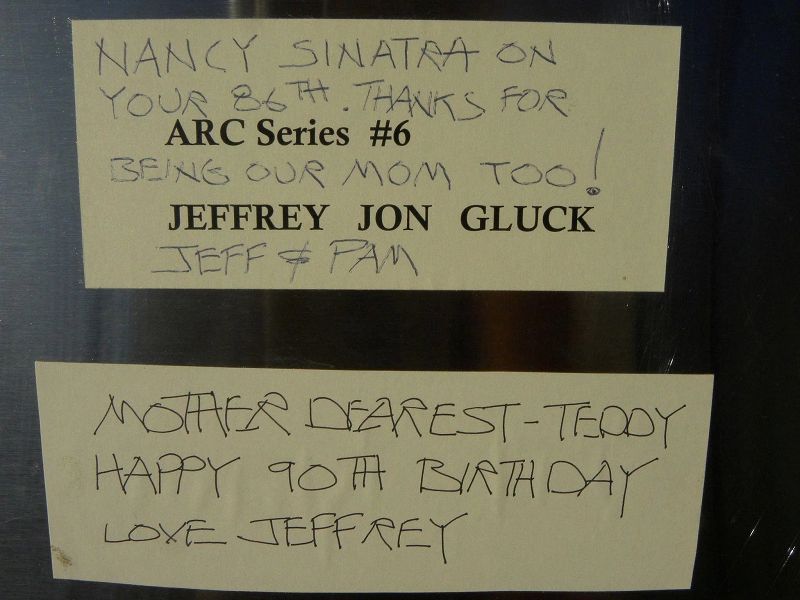 NANCY SINATRA ON
YOUR 86TH. THANKS FOR
ARC Series #6
BEING OUR MOM TOO!
JEFFREY JON GLUCK
JEFF & PAM
MOTHER DEAREST - TEDDY
HAPPY 90TH BIRTHDAY
LOVE JEFFREY